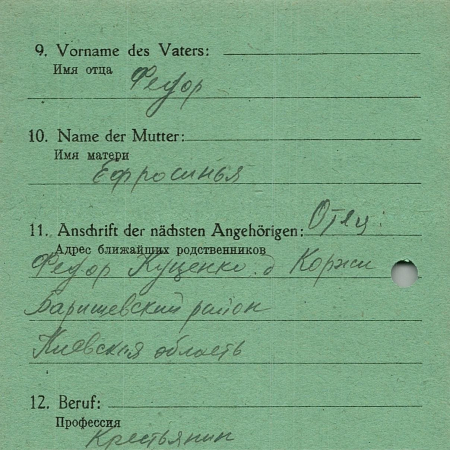 9. Vorname des Vaters:
Имя отца
Федор
10. Name der Mutter:
Имя матери
Ефросинья
11. Anschrift der nächsten Angehörigen: Отец:
Адрес ближайших родственников
Федор Куценко. д Коржи
Баришевский район
Киевская область
12. Beruf:
Профессия
Крестьянин